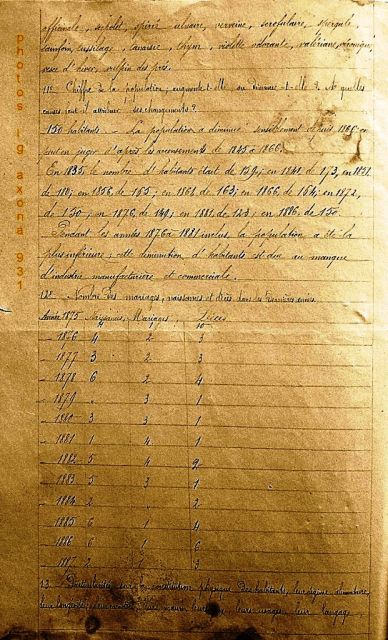 officinale, serpolet, spirée ulmaire, verveine, scrofulaire, spergule
tussilage, tanaisie, thym, violette odorante, valériane, véronique,
vesce d'hiver, des prés.
11º Chiffre de la population, augmente-t-elle ou diminue-t-elle ? A quelles
causes faut-il attribuer ses changements ?
150 habitants - La population a diminué sensiblement depuis
peut en juger d'après les recensements de 1835 à 1866.
En 1835 le nombre d'habitants était de 179; en 1841 de 173, en 1851
de en 1856 de 165; en 1861 de 163; en 1866 de 154; en 1872,
de 150; en 1876, de 149; en 1881 de 123; en 1886, de 150.
Pendant les années 1876 à 1881 inclus, la population a été la
plus inférieure; cette diminution d'habitants est due au manque
d'industrie manufacturière et commerciale.
12º Nombre des mariages, naissances et décès dans les dernières années
Année 1875 Naissances, Mariages, Décès
4 1 10
1876 4 2 3
1877 3 2 3
1878 6 2 4
1879 " 3 1
1880 3 3 1
1881 1 4 1
1882 5 4 9
1883 5 3 1
1884 2 " 2
1885 6 1 4
1886 6 1 6
1887 2 3
13 Particularités sur la constitution physique des habitants, leur régime alimentaire,
leur longévité leurs mœurs leurs usages, leur langage
photos ig axona 931